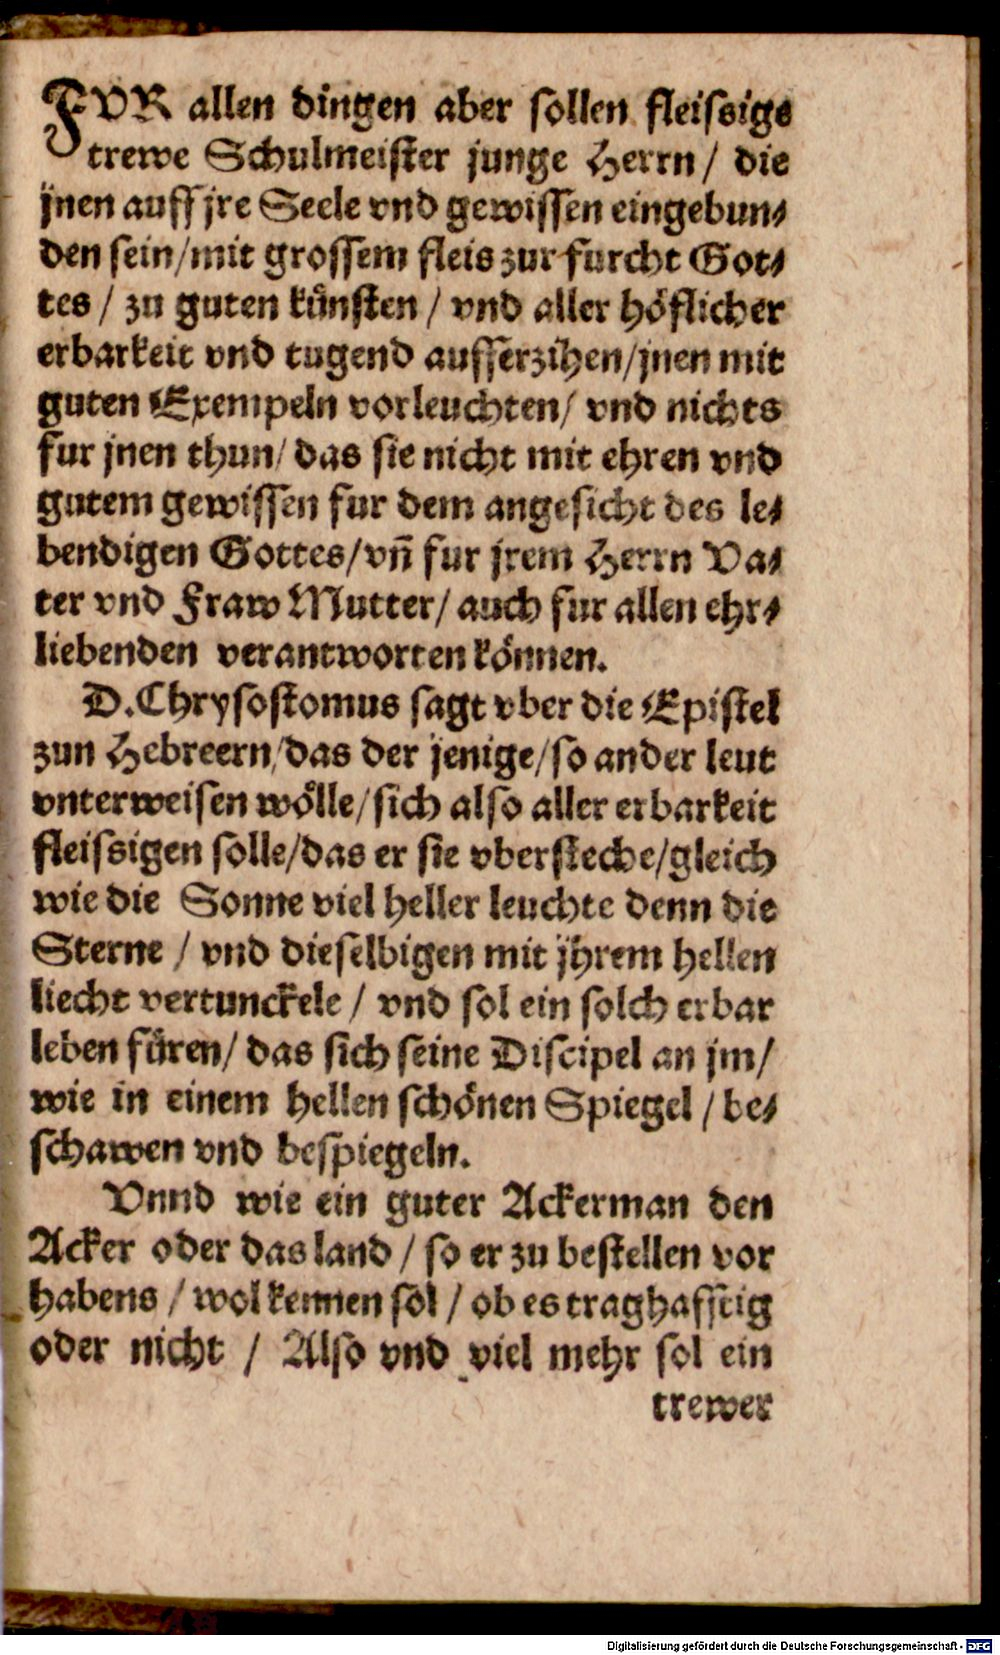 FVR allen dingen aber sollen fleissige
trewe Schulmeister junge Herrn/ die
jnen auff jre Seele vnd gewissen eingebun⸗
den sein/mit grossem fleis zur furcht Got⸗
tes / zu guten kuͤnsten / vnd aller hoͤflicher
erbarkeit vnd tugend aufferzihen/jnen mit
guten Exempeln vorleuchten/ vnd nichts
fur jnen thun/ das sie nicht mit ehren vnd
gutem gewissen fur dem angesicht des le⸗
bendigen Gottes/vn̄ fur jrem Herrn Va⸗
ter vnd Fraw Mutter/ auch fur allen ehr⸗
liebenden verantworten koͤnnen.
D. Chrysostomus sagt vber die Epistel
zun Hebreern/das der jenige/so ander leut
vnterweisen woͤlle/sich also aller erbarkeit
fleissigen solle/das er sie vbersteche/gleich
wie die Sonne viel heller leuchte denn die
Sterne / vnd dieselbigen mit jhrem hellen
liecht vertunckele / vnd sol ein solch erbar
leben fuͤren/ das sich seine Discipel an jm/
wie in einem hellen schoͤnen Spiegel / be⸗
schawen vnd bespiegeln.
Vnnd wie ein guter Ackerman den
Acker oder das land / so er zu bestellen vor
habens / wol kennen sol / ob es traghafftig
oder nicht / Also vnd viel mehr sol ein
trewer
Digitalisierung gefördert durch die Deutsche Forschungsgemeinschaft - DFG